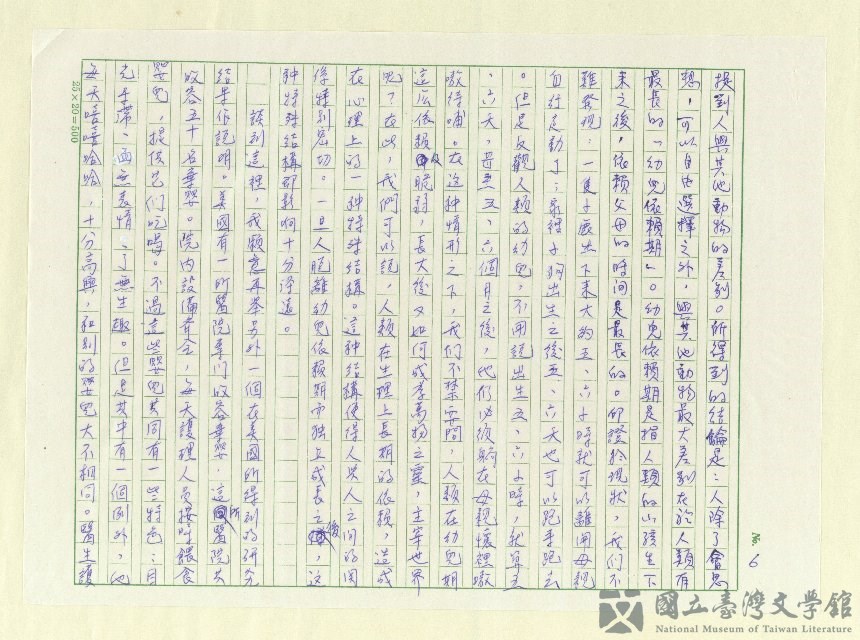 6
提到人與其他動物的差別。所得到的結論是:人除了會思
想,可以自由選擇之外,與其他動物最大差別在於人類有
最長的「幼兒依賴期」。幼兒依賴期是指人類的小孩生下
來之後,依賴父母的時间是最長的。印證於現狀,我們不
難發現:一隻小鹿生下來大約五、六小時就可以離開母親
自行走動了;家裡小狗出生之後五、六天也可以跑來跑去
。但是反觀人類的幼兒,不用說出生五、六小時,就算五
、六天,甚至五、六個月之後,他們必須躺在母親懷裡嗷
嗷待哺。在这种情形之下,我們不禁要問,人類在幼兒期
這麼依賴及脆弱,長大後又如何成萬物之靈,主宰世界
呢?在此,我們可以說,人類在生理上長期的依賴,造成
在心理上的一种特殊結構。這种結構使得人與人之间的関
係特別密切。一旦人脫離幼兒依賴期而獨立成長之後,这
种特殊結構卻影响十分深遠。
談到這裡,我願意再舉另外一個在美國所得到的研究
結果作説明。美國有一所醫院專门收容棄嬰,這所醫院共
收容五十名棄嬰。院內設備齊全,每天護理人員按時餵食
嬰兒,提供它们吃喝。不過这些嬰兒共同有一些特色:目
光呆滯、面無表情、了無生趣。但是其中有一個例外,他
每天嘻嘻哈哈,十分高興,和別的嬰兒大不相同。醫生護
25×20=500
國立臺灣文學館
National Museum of Taiwan Literature